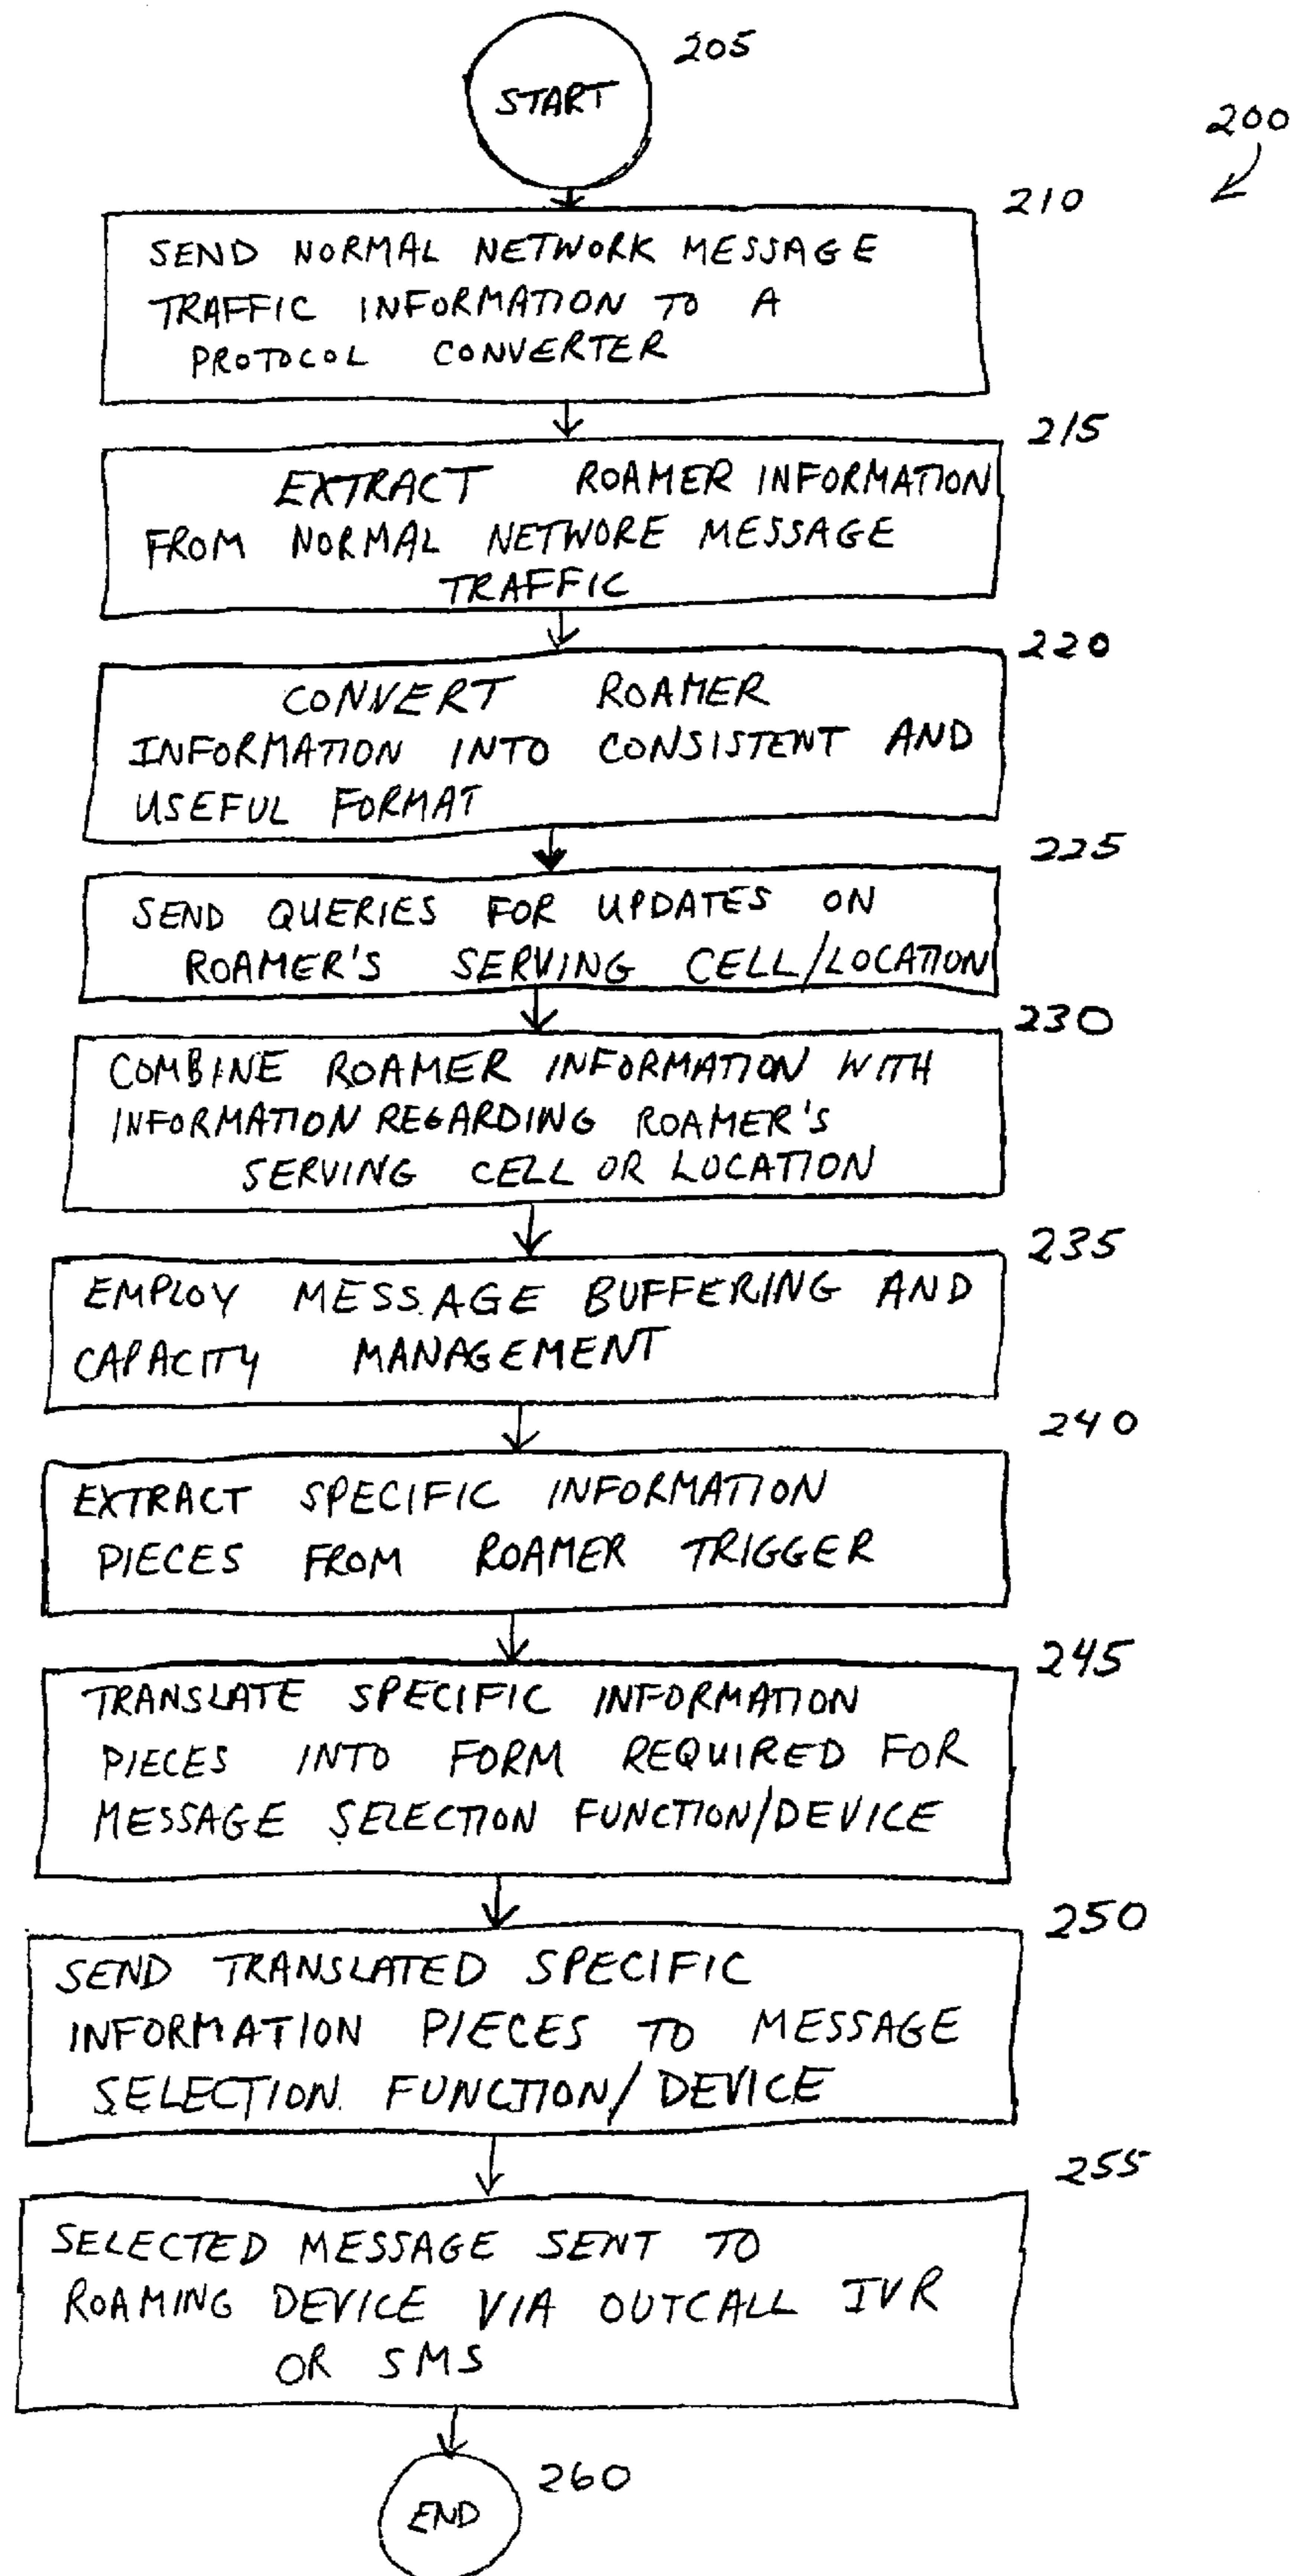 205
START
200
210
SEND NORMAL NETWORK MESSAGE
TRAFFIC INFORMATION TO A
PROTOCOL CONVERTER
215
EXTRACT ROAMER INFORMATION
FROM NORMAL NETWORE MESSAGE
TRAFFIC
220
CONVERT ROAMER
INFORMATION INTO CONSISTENT AND
USEFUL FORMAT
225
SEND QUERIES FOR UPDATES ON
ROAMER'S SERVING CELL/LOCATION
230
COMBINE ROAMER INFORMATION WITH
INFORMATION REGARDING ROAMER'S
SERVING CELL OR LOCATION
235
EMPLOY MESSAGE BUFFERING AND
CAPACITY MANAGEMENT
240
EXTRACT SPECIFIC INFORMATION
PIECES FROM ROAMER TRIGGER
245
TRANSLATE SPECIFIC INFORMATION
PIECES INTO FORM REQUIRED FOR
MESSAGE SELECTION FUNCTION/DEVICE
250
SEND TRANSLATED SPECIFIC
INFORMATION PIECES TO MESSAGE
SELECTION FUNCTION/DEVICE
255
SELECTED MESSAGE SENT TO
ROAMING DEVICE VIA OUTCALL IVR
OR SMS
260
END